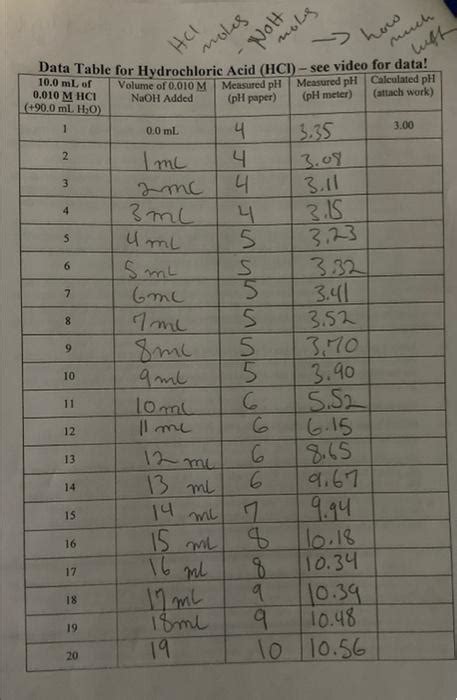 HCl moles - NaOH moles → how much left
Data Table for Hydrochloric Acid (HCl) – see video for data!
10.0 mL of 0.010 M HCl (+90.0 mL H₂O) Volume of 0.010 M NaOH Added Measured pH (pH paper) Measured pH (pH meter) Calculated pH (attach work)
1 0.0 mL 4 3.35 3.00
2 1 mL 4 3.08
3 2 mL 4 3.11
4 3 mL 4 3.15
5 4 mL 5 3.23
6 5 mL 5 3.32
7 6 mL 5 3.41
8 7 mL 5 3.52
9 8 mL 5 3.70
10 9 mL 5 3.90
11 10 mL 6 5.52
12 11 mL 6 6.15
13 12 mL 6 8.65
14 13 mL 6 9.67
15 14 mL 7 9.94
16 15 mL 8 10.18
17 16 mL 8 10.34
18 17 mL 9 10.39
19 18 mL 9 10.48
20 19 10 10.56